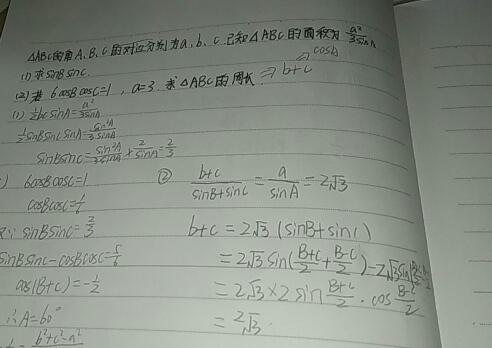 △ABC的角A、B、C的对边分别为a、b、c.已知△ABC的面积为 a²/3sinA
(1)求sinBsinC.
cosA
(2)若 6cosBcosC=1, a=3.求△ABC的周长.⇒ b+c
(1) ½bcsinA= a²/3sinA
½sinBsinCsinA= sin²A/3sinA
sinBsinC= sin²A/3sinA × 2/sinA = 2/3
) 6cosBcosC=1
cosBcosC=1/6
又∵ sinBsinC= 2/3
sinBsinC-cosBcosC= 5/6
cos(B+C)=-1/2
∴A=60°
b²+c²-a²
② b+c/sinB+sinC = a/sinA =2√3
b+c=2√3 (sinB+sinC)
=2√3 sin(B+C/2 + B-C/2)-2√3sin
=2√3×2 sin B+C/2 · cos B-C/2
=2√3